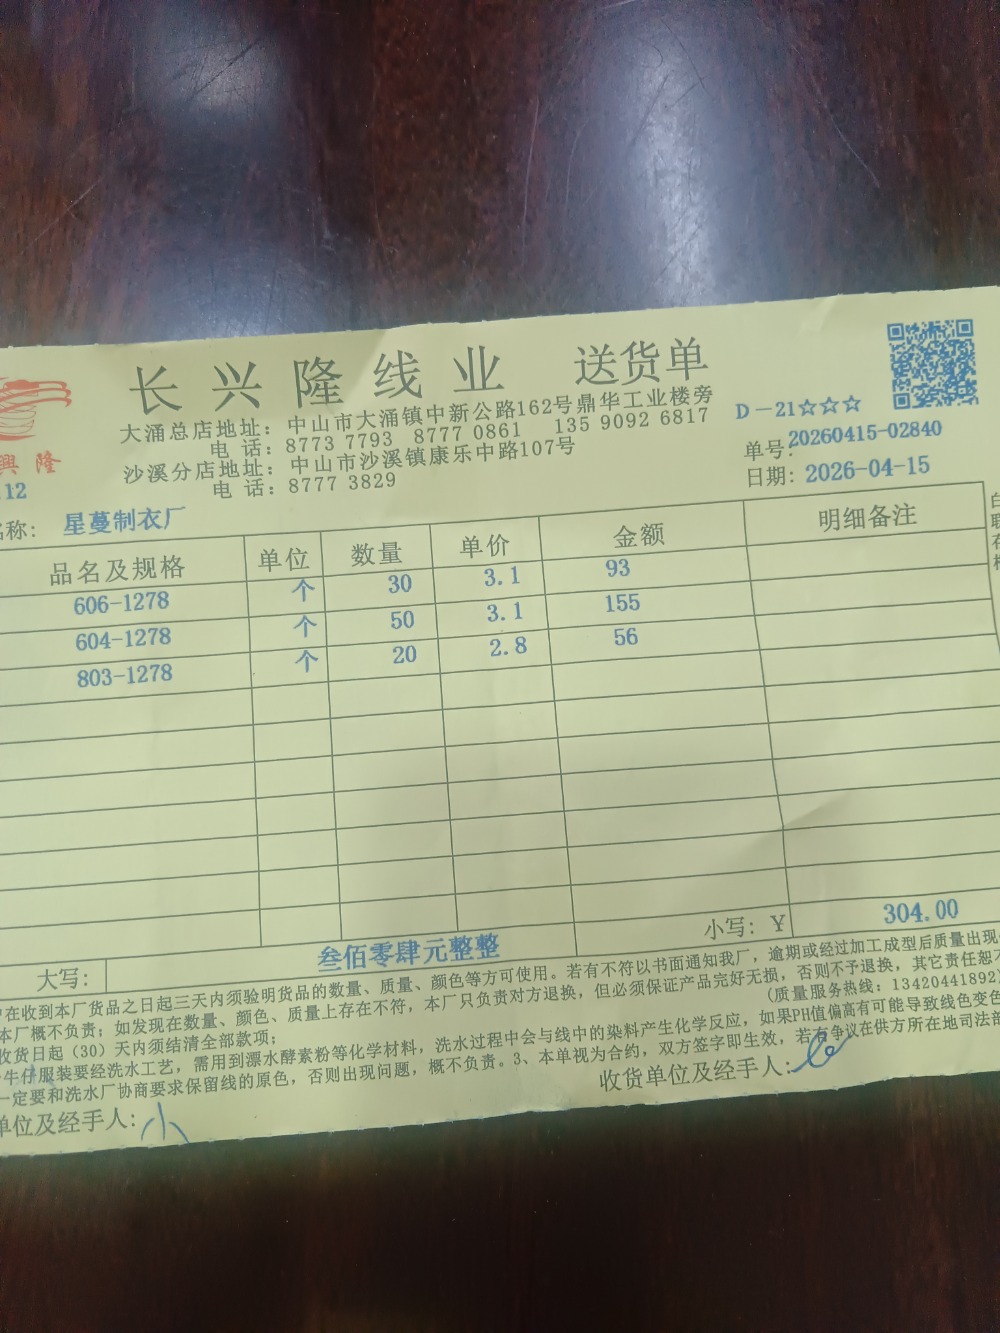 长兴隆线业 送货单
大涌总店地址: 中山市大涌镇中新公路162号鼎华工业楼旁
电 话: 8773 7793 8777 0861 135 9092 6817
沙溪分店地址: 中山市沙溪镇康乐中路107号
电 话: 8777 3829
D-21☆☆☆
单号: 20260415-02840
日期: 2026-04-15
興隆
12
名称: 星蔓制衣厂
品名及规格 单位 数量 单价 金额 明细备注
606-1278 个 30 3.1 93
604-1278 个 50 3.1 155
803-1278 个 20 2.8 56
大写: 叁佰零肆元整整 小写: Y 304.00
在收到本厂货品之日起三天内须验明货品的数量、质量、颜色等方可使用。若有不符以书面通知我厂，逾期或经过加工成型后质量出现
本厂概不负责；如发现在数量、颜色、质量上存在不符，本厂只负责对方退换，但必须保证产品完好无损，否则不予退换，其它责任恕不
收货日起（30）天内须结清全部款项； (质量服务热线: 13420441892)
牛仔服装要经洗水工艺，需用到漂水酵素粉等化学材料，洗水过程中会与线中的染料产生化学反应，如果PH值偏高有可能导致线色变色
一定要和洗水厂协商要求保留线的原色，否则出现问题，概不负责。3、本单视为合约，双方签字即生效，若有争议在供方所在地司法部
单位及经手人: 小 收货单位及经手人: